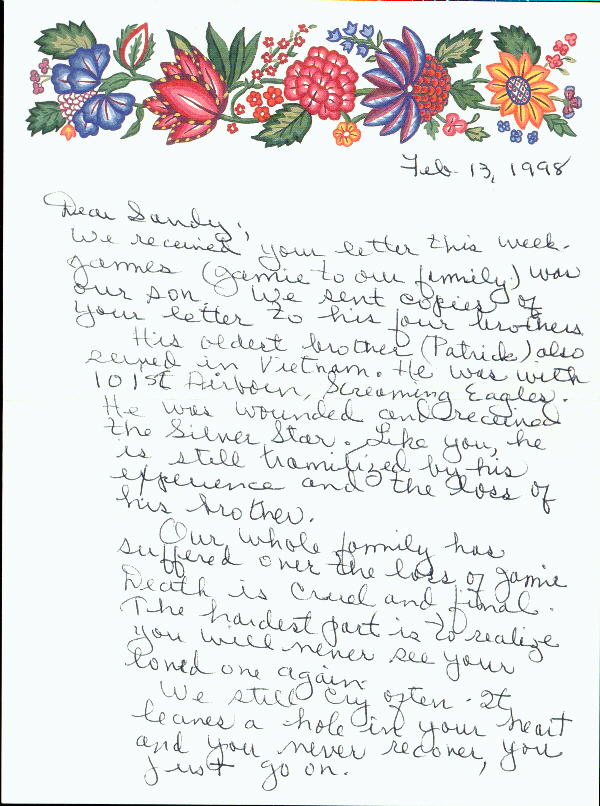 Feb. 13, 1998
Dear Sandy,
We received your letter this week.
James (Jamie to our family) was
our son. We sent copies of
your letter to his four brothers.
His oldest brother (Patrick) also
served in Vietnam. He was with
101st Airborn, Screaming Eagles.
He was wounded and received
the Silver Star. Like you, he
is still tramitized by his
experience and the loss of
his brother.
Our whole family has
suffered over the loss of Jamie
Death is cruel and final.
The hardest part is to realize
you will never see your
loved one again.
We still cry often - It
leaves a hole in your heart
and you never recover, you
just go on.